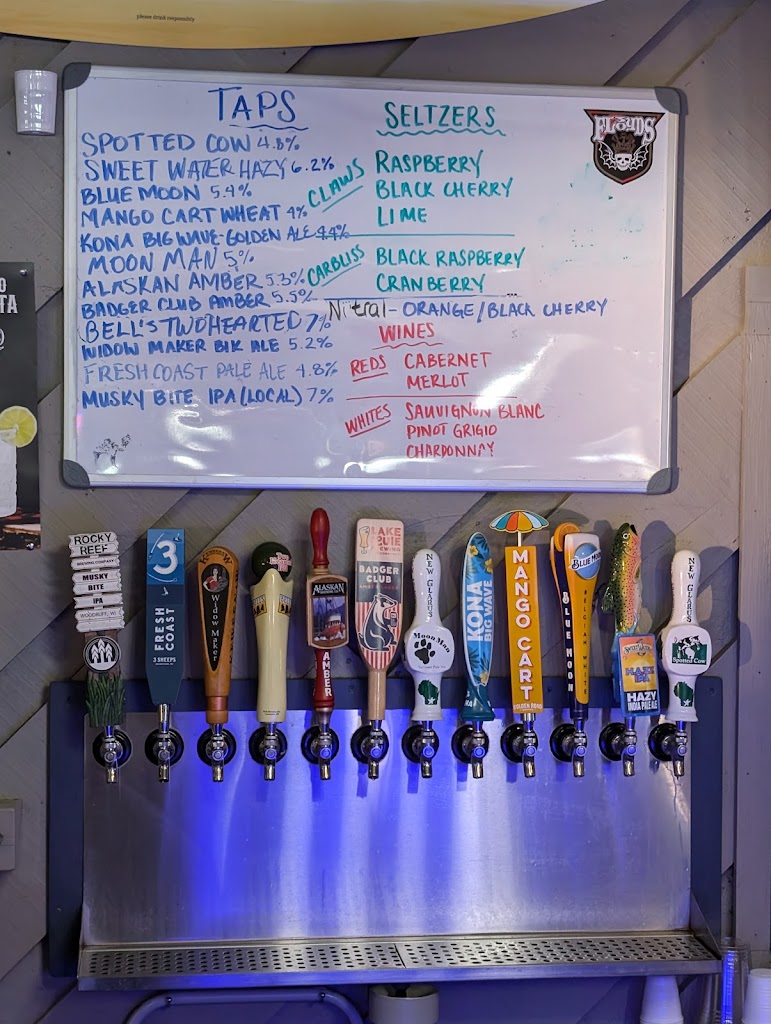 please drink responsibly
TAPS
SPOTTED COW 4.8%
SWEET WATER HAZY 6.2%
BLUE MOON 5.4%
MANGO CART WHEAT 4%
KONA BIG WAVE-GOLDEN ALE 4.4%
MOON MAN 5%
ALASKAN AMBER 5.3%
BADGER CLUB AMBER 5.5%
BELL'S TWO HEARTED 7%
WIDOW MAKER BLK ALE 5.2%
FRESH COAST PALE ALE 4.8%
MUSKY BITE IPA (LOCAL) 7%
SELTZERS
CLAWS
RASPBERRY
BLACK CHERRY
LIME
CARBLISS
BLACK RASPBERRY
CRANBERRY
Nütral - ORANGE/BLACK CHERRY
WINES
REDS
CABERNET
MERLOT
WHITES
SAUVIGNON BLANC
PINOT GRIGIO
CHARDONNAY
FLOYDS
TA
ROCKY
REEF
BREWING COMPANY
MUSKY
BITE
IPA
WOODRUFF, WI
3
FRESH
COAST
3 SHEEPS
Widow Maker
ALASKAN
AMBER
LAKE
BADGER
CLUB
NEW GLARUS
Moon Man
KONA
BIG WAVE
MANGO CART
GOLDEN ROAD
BLUE MOON
BLUE MOON
BELGIAN WHITE
HAZY
IPA
HAZY
INDIA PALE ALE
NEW GLARUS
Spotted Cow